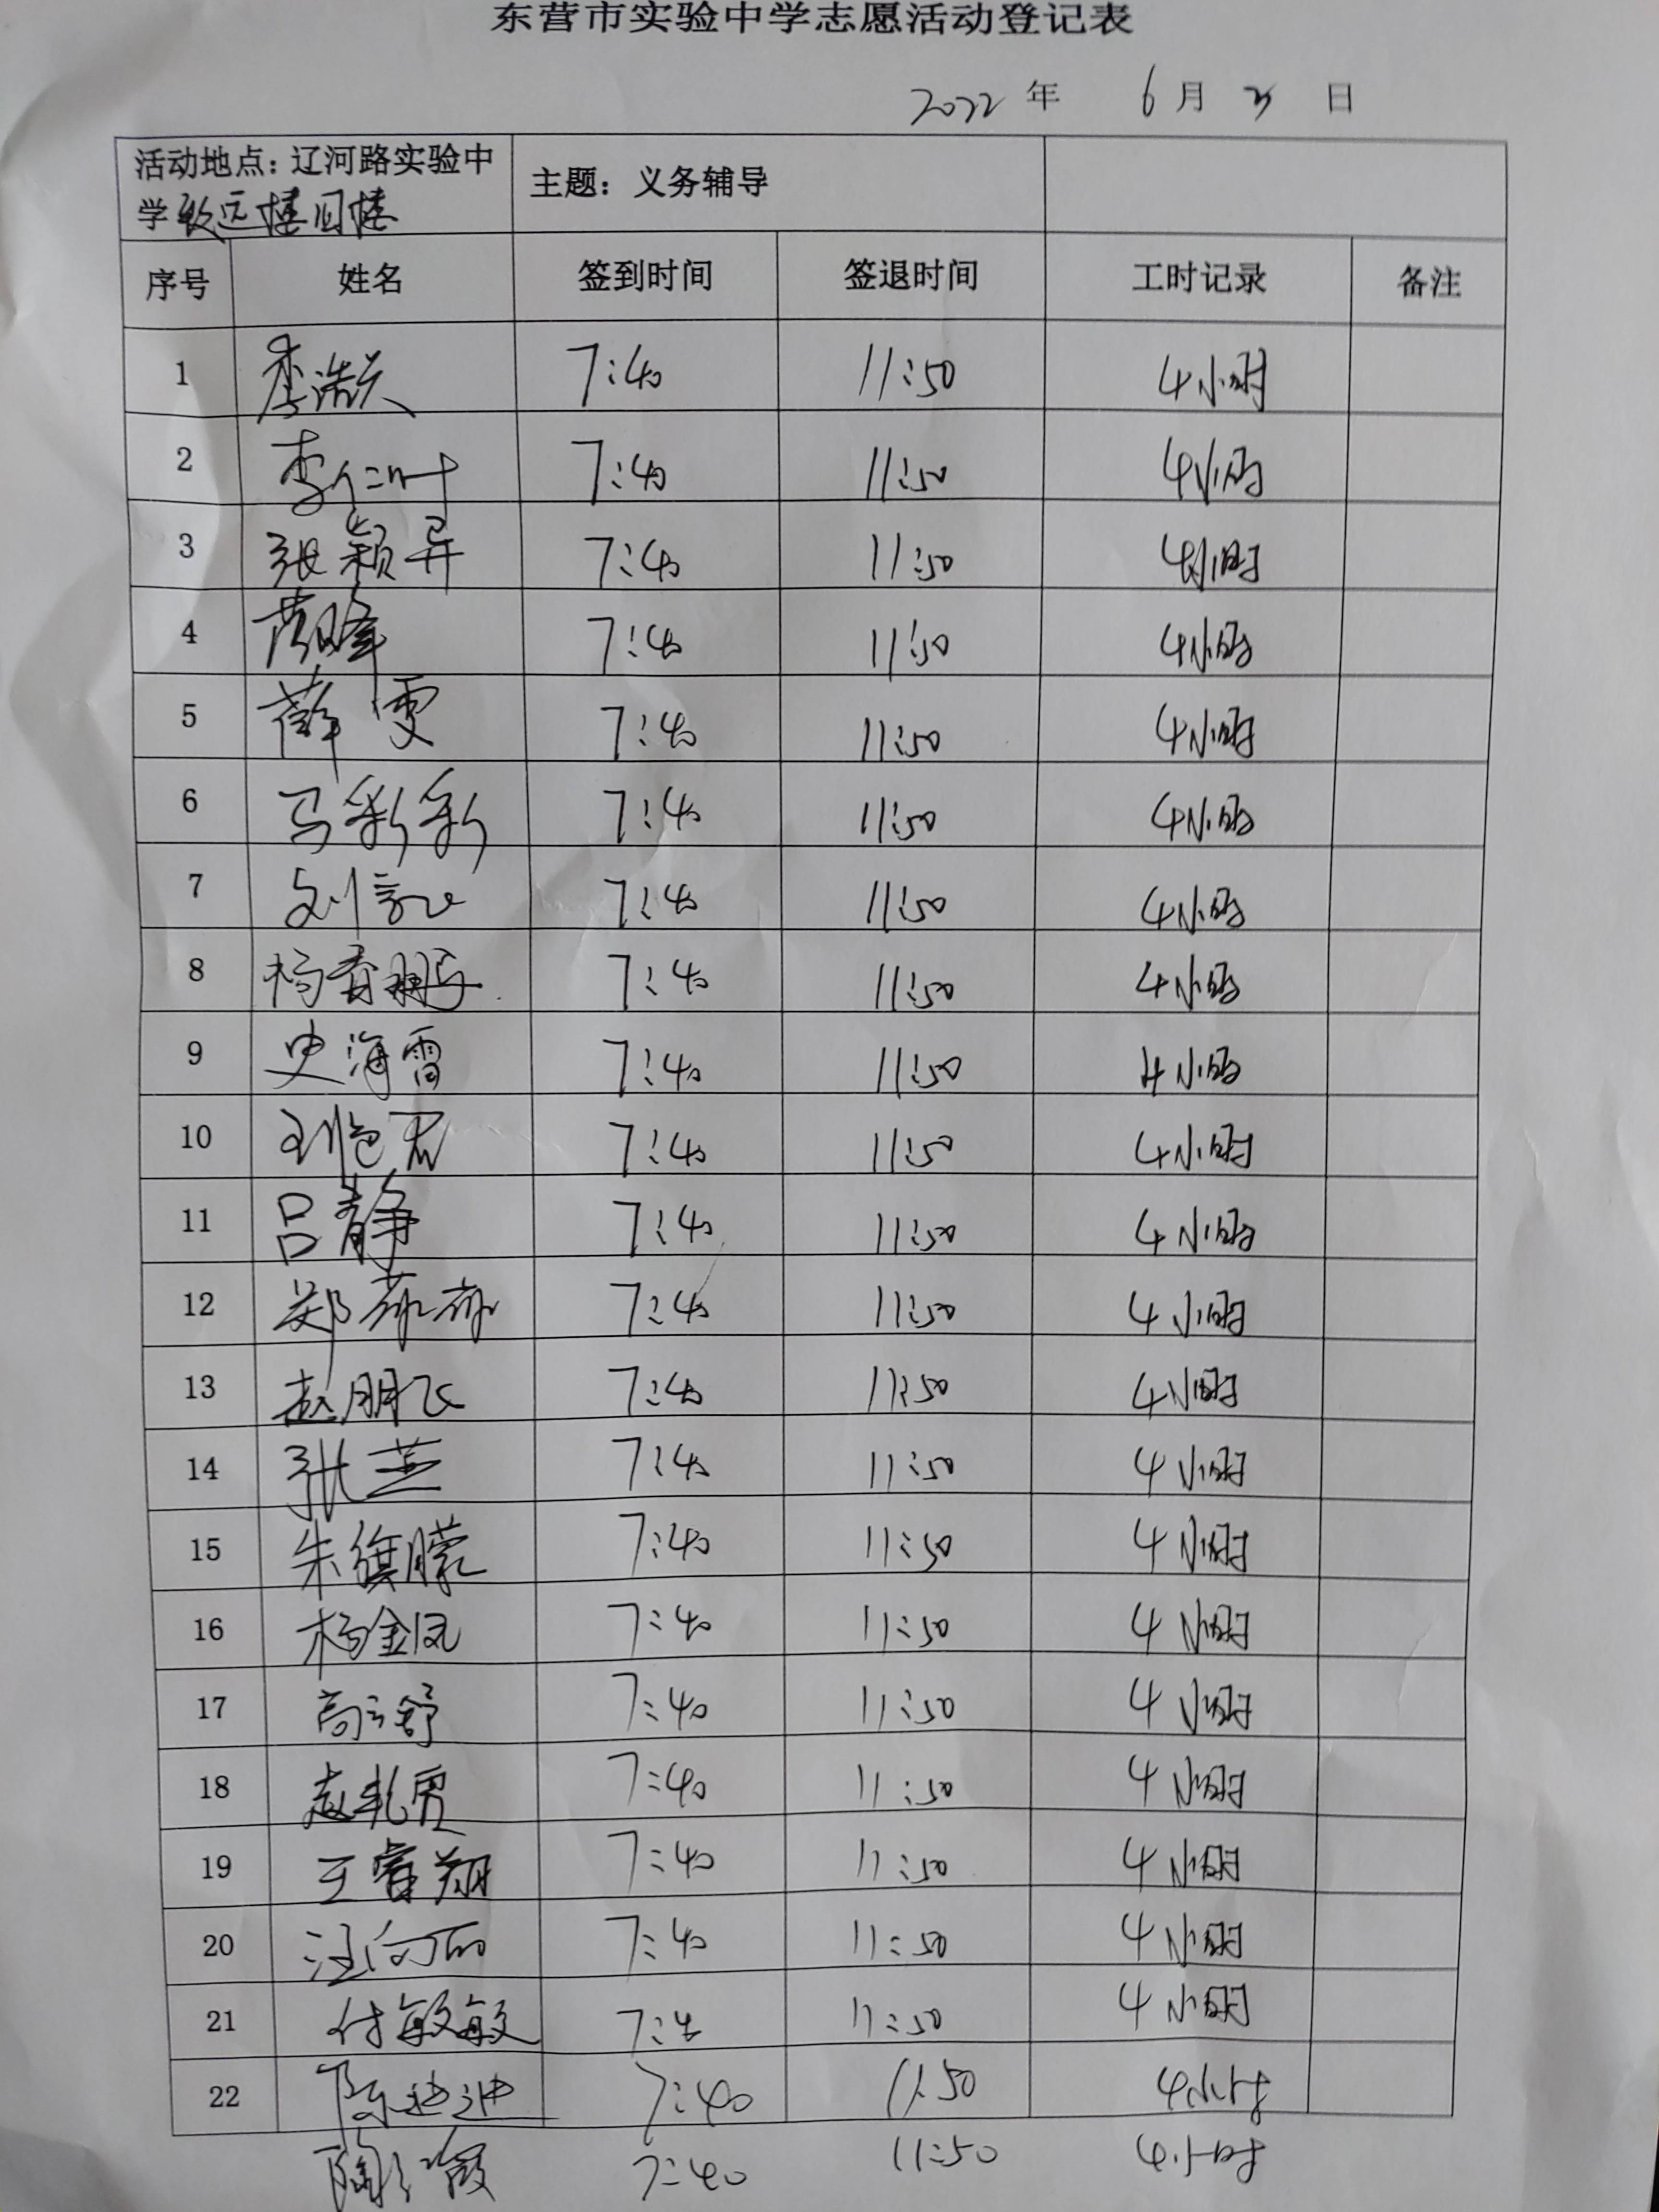 东营市实验中学志愿活动登记表
2022 年 6 月 日
活动地点：辽河路实验中
学致远楼旧楼
主题：义务辅导
序号 姓名 签到时间 签退时间 工时记录 备注
1 李浩天 7:40 11:50 4小时
2 李仁叶 7:40 11:50 4小时
3 张颖异 7:40 11:50 4小时
4 黄峰 7:40 11:50 4小时
5 薛雯 7:40 11:50 4小时
6 马彩彩 7:40 11:50 4小时
7 刘 7:40 11:50 4小时
8 杨春鹏 7:40 11:50 4小时
9 史海雷 7:40 11:50 4小时
10 刘 君 7:40 11:50 4小时
11 吕静 7:40 11:50 4小时
12 郑 7:40 11:50 4小时
13 赵朋飞 7:40 11:50 4小时
14 张芸 7:40 11:50 4小时
15 朱旗朦 7:40 11:50 4小时
16 杨金凤 7:40 11:50 4小时
17 高云舒 7:40 11:50 4小时
18 赵 7:40 11:50 4小时
19 王睿翔 7:40 11:50 4小时
20 汪向丽 7:40 11:50 4小时
21 付敏敏 7:4 11:50 4小时
22 陈迪迪 7:40 11:50 4小时
陶 霞 7:40 11:50 4小时